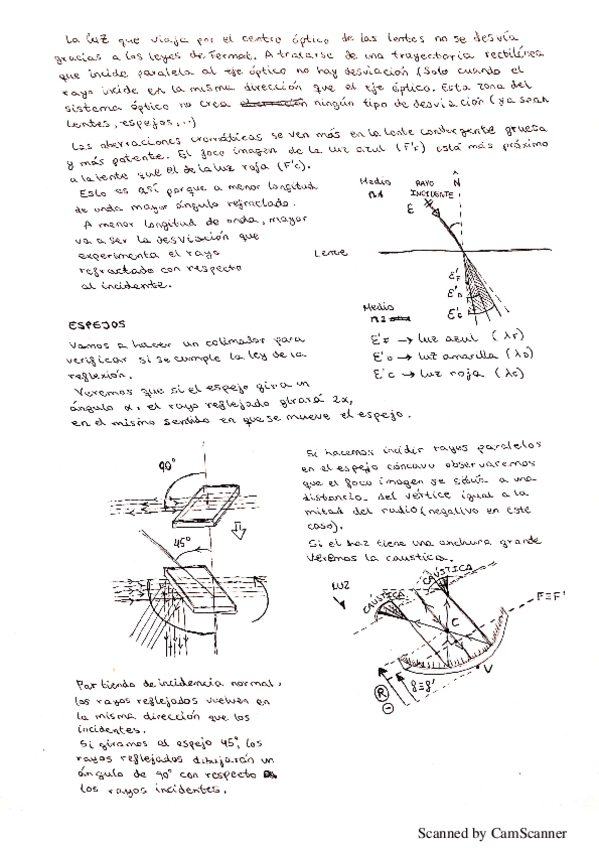 La luz que viaja por el centro óptico de las lentes no se desvía
gracias a las leyes de Fermat. A tratarse de una trayectoria rectilínea
que incide paralela al eje óptico no hay desviación (Solo cuando el
rayo incide en la misma dirección que el eje óptico. Esta zona del
sistema óptico no crea aberración ningún tipo de desviación (ya sean
lentes, espejos,...)
Las aberraciones cromáticas se ven más en la lente convergente gruesa
y más potente. El foco imagen de la luz azul (F'F) está más próximo
a la lente que el de la luz roja (F'c).
Esto es así porque a menor longitud
de onda mayor ángulo refractado.
A menor longitud de onda, mayor
va a ser la desviación que
experimenta el rayo
refractado con respecto
al incidente.
Medio
n1
RAYO
INCIDENTE
N
ε
Lente
ε'F
ε'D
ε'C
Medio
n2
ε'F → luz azul (λF)
ε'D → luz amarilla (λD)
ε'C → luz roja (λC)
ESPEJOS
Vamos a hacer un colimador para
verificar si se cumple la ley de la
reflexión.
Veremos que si el espejo gira un
ángulo α, el rayo reflejado girará 2α,
en el mismo sentido en que se mueve el espejo.
90°
45°
Si hacemos incidir rayos paralelos
en el espejo cóncavo observaremos
que el foco imagen se sitúa a una
distancia del vértice igual a la
mitad del radio (negativo en este
caso).
Si el haz tiene una anchura grande
veremos la caustica.
LUZ
CAÚSTICA
CAÚSTICA
F≡F'
C
V
f≡f'
R
Partiendo de incidencia normal,
los rayos reflejados vuelven en
la misma dirección que los
incidentes.
Si giramos el espejo 45°, los
rayos reflejados dibujarán un
ángulo de 90° con respecto
los rayos incidentes.
Scanned by CamScanner